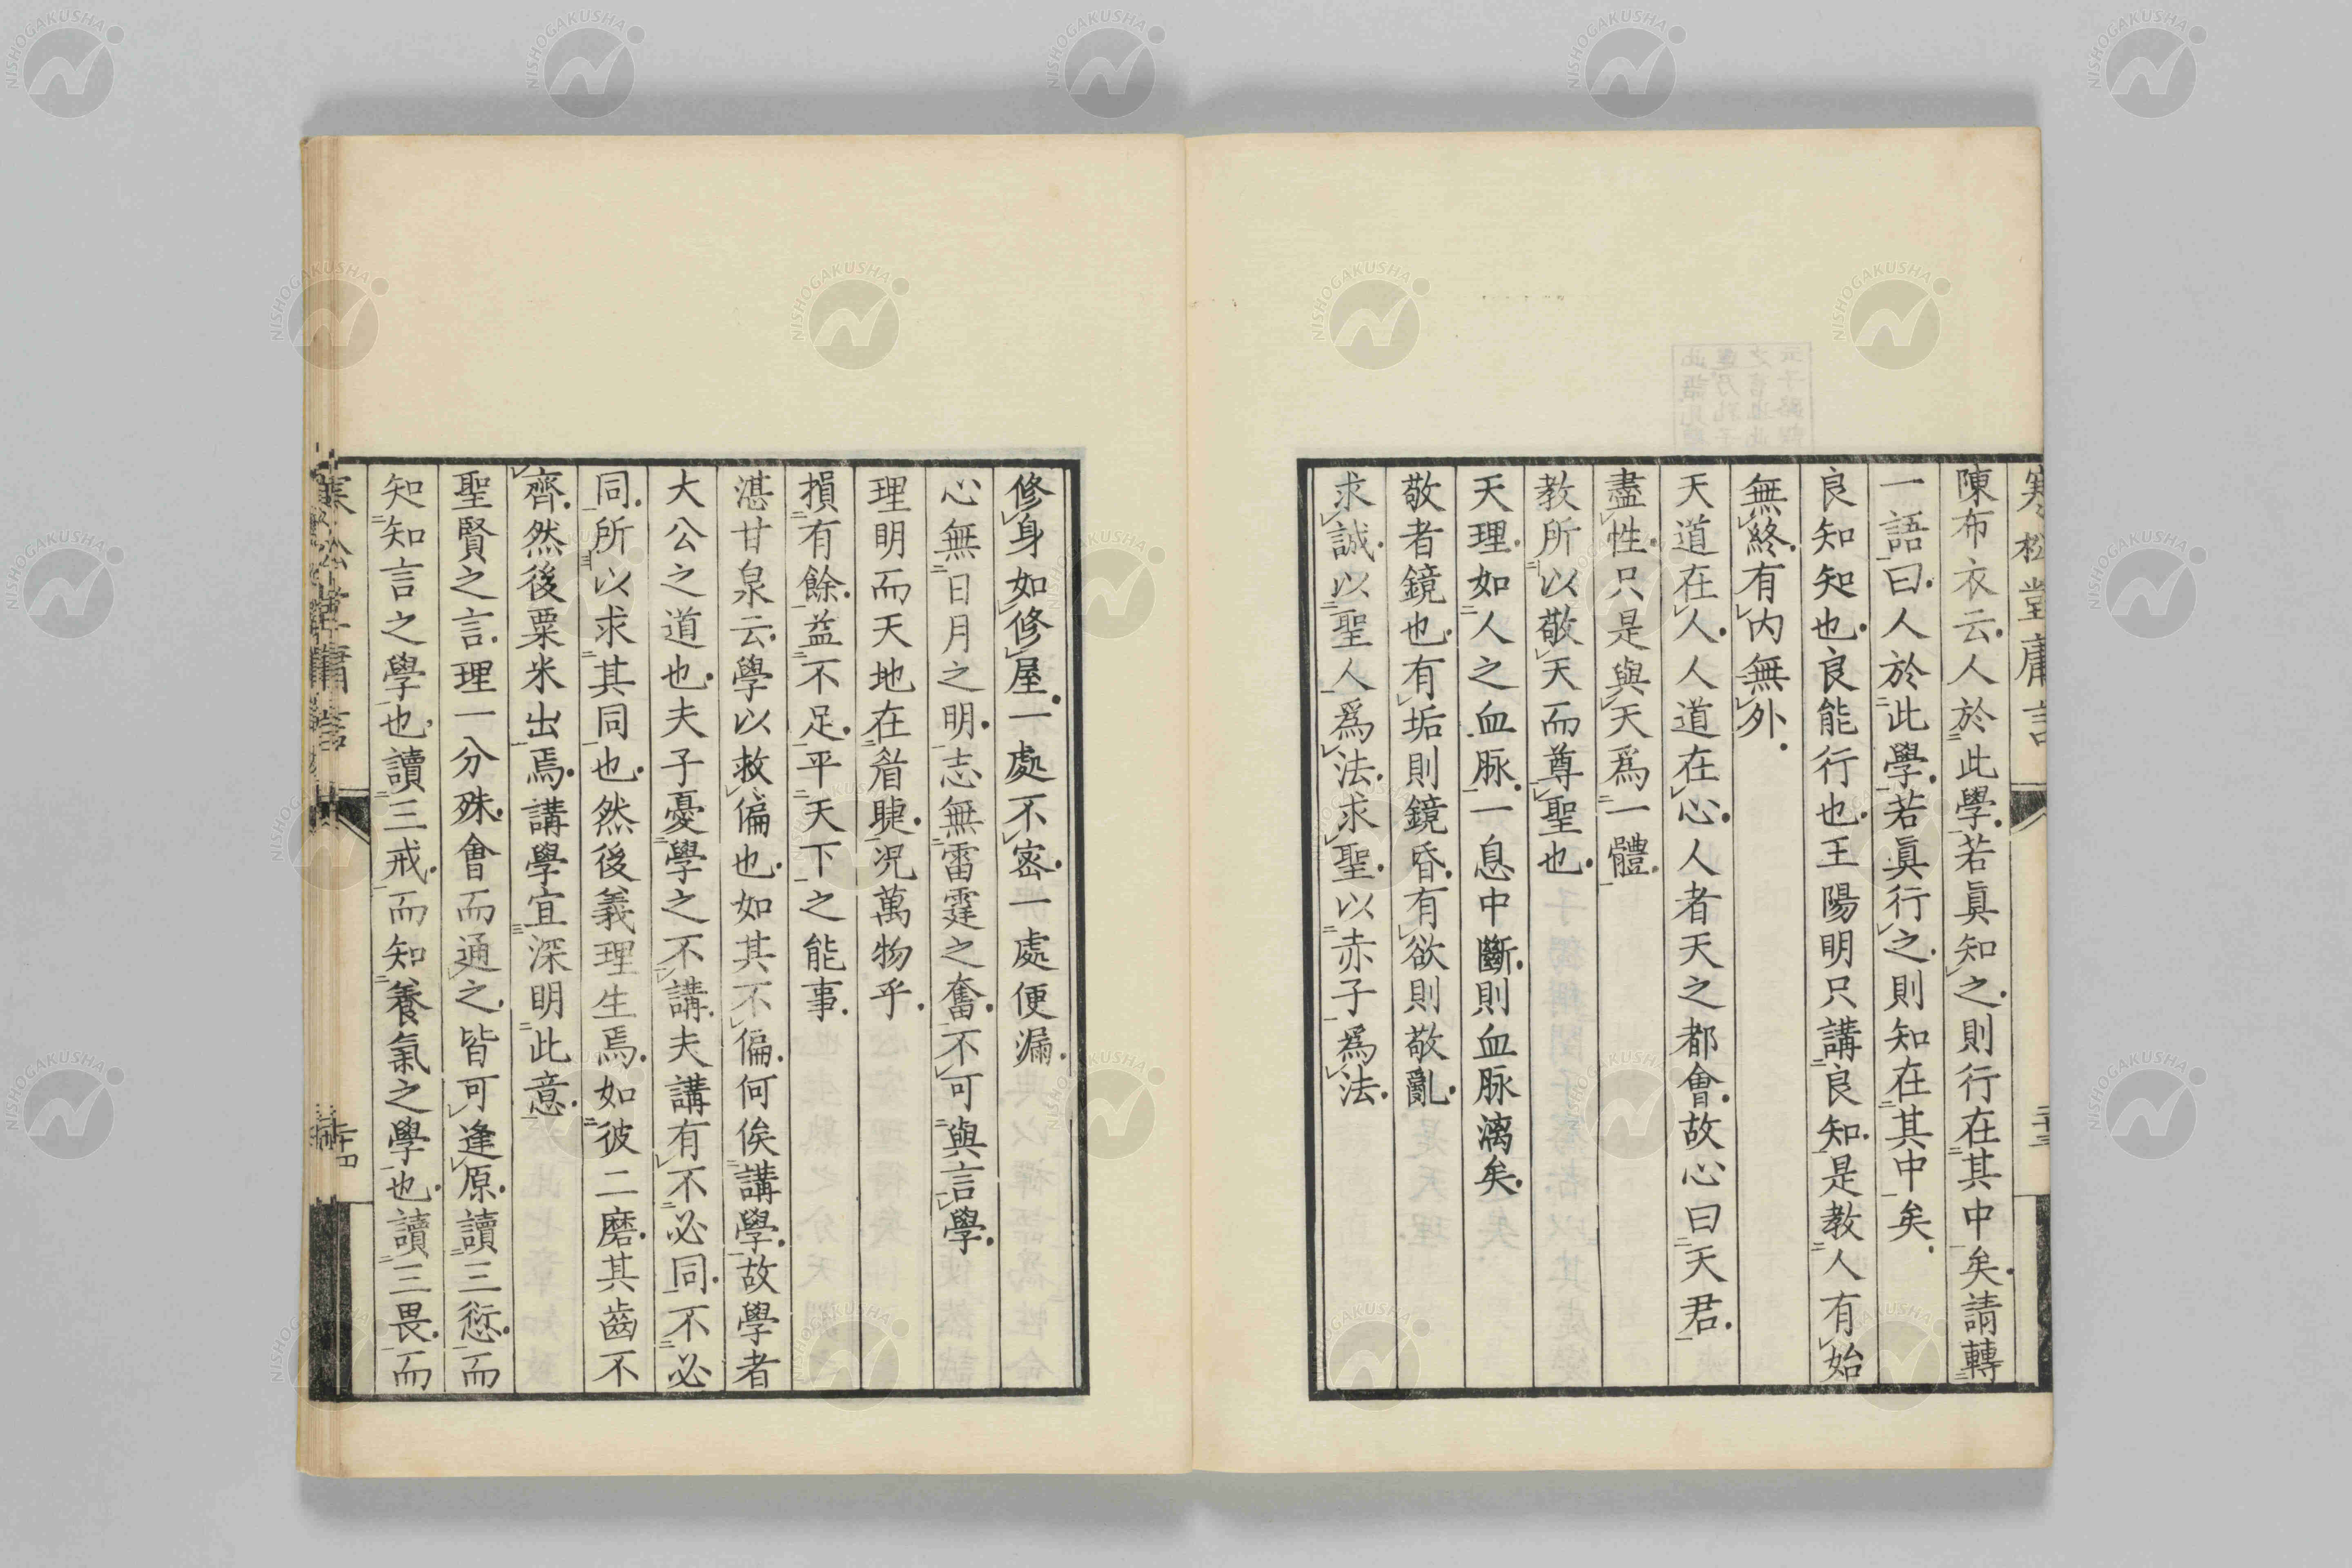 寒松堂庸言
陳布衣云人於此學若眞知之則行在其中矣請轉
一語曰人於此學若眞行之則知在其中矣
良知知也良能行也王陽明只講良知是教人有始
無終有内無外
天道在人人道在心人者天之都會故心曰天君
盡性只是與天爲一體
教所以敬天而尊聖也
天理如人之血脉一息中斷則血脉漓矣
敬者鏡也有垢則鏡昏有欲則敬亂
求誠以聖人爲法求聖以赤子爲法
修身如修屋一處不宻一處便漏
心無日月之明志無雷霆之奮不可與言學
理明而天地在眉睫况萬物乎
損有餘益不足平天下之能事
湛甘泉云學以救偏也如其不偏何俟講學故學者
大公之道也夫子憂學之不講夫講有不必同不必
同所以求其同也然後義理生焉如彼二磨其齒不
齊然後粟米出焉講學宜深明此意
聖賢之言理一分殊會而通之皆可逢原讀三愆而
知知言之學也讀三戒而知養氣之學也讀三畏而
NISHOGAKUSHA